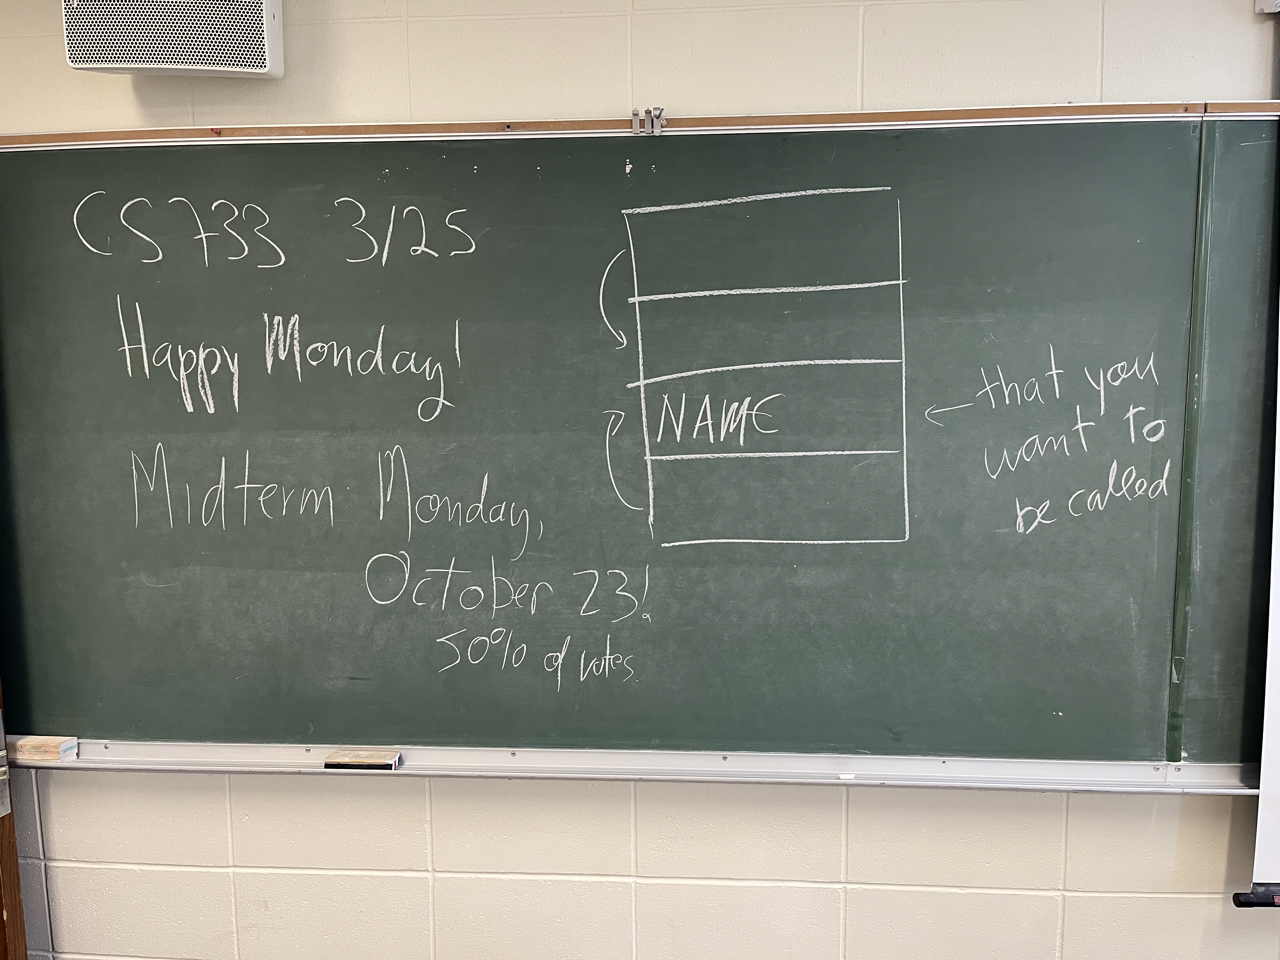 CS733 3/25
Happy Monday!
Midterm Monday,
October 23!
50% of votes
NAME
← that you
want to
be called